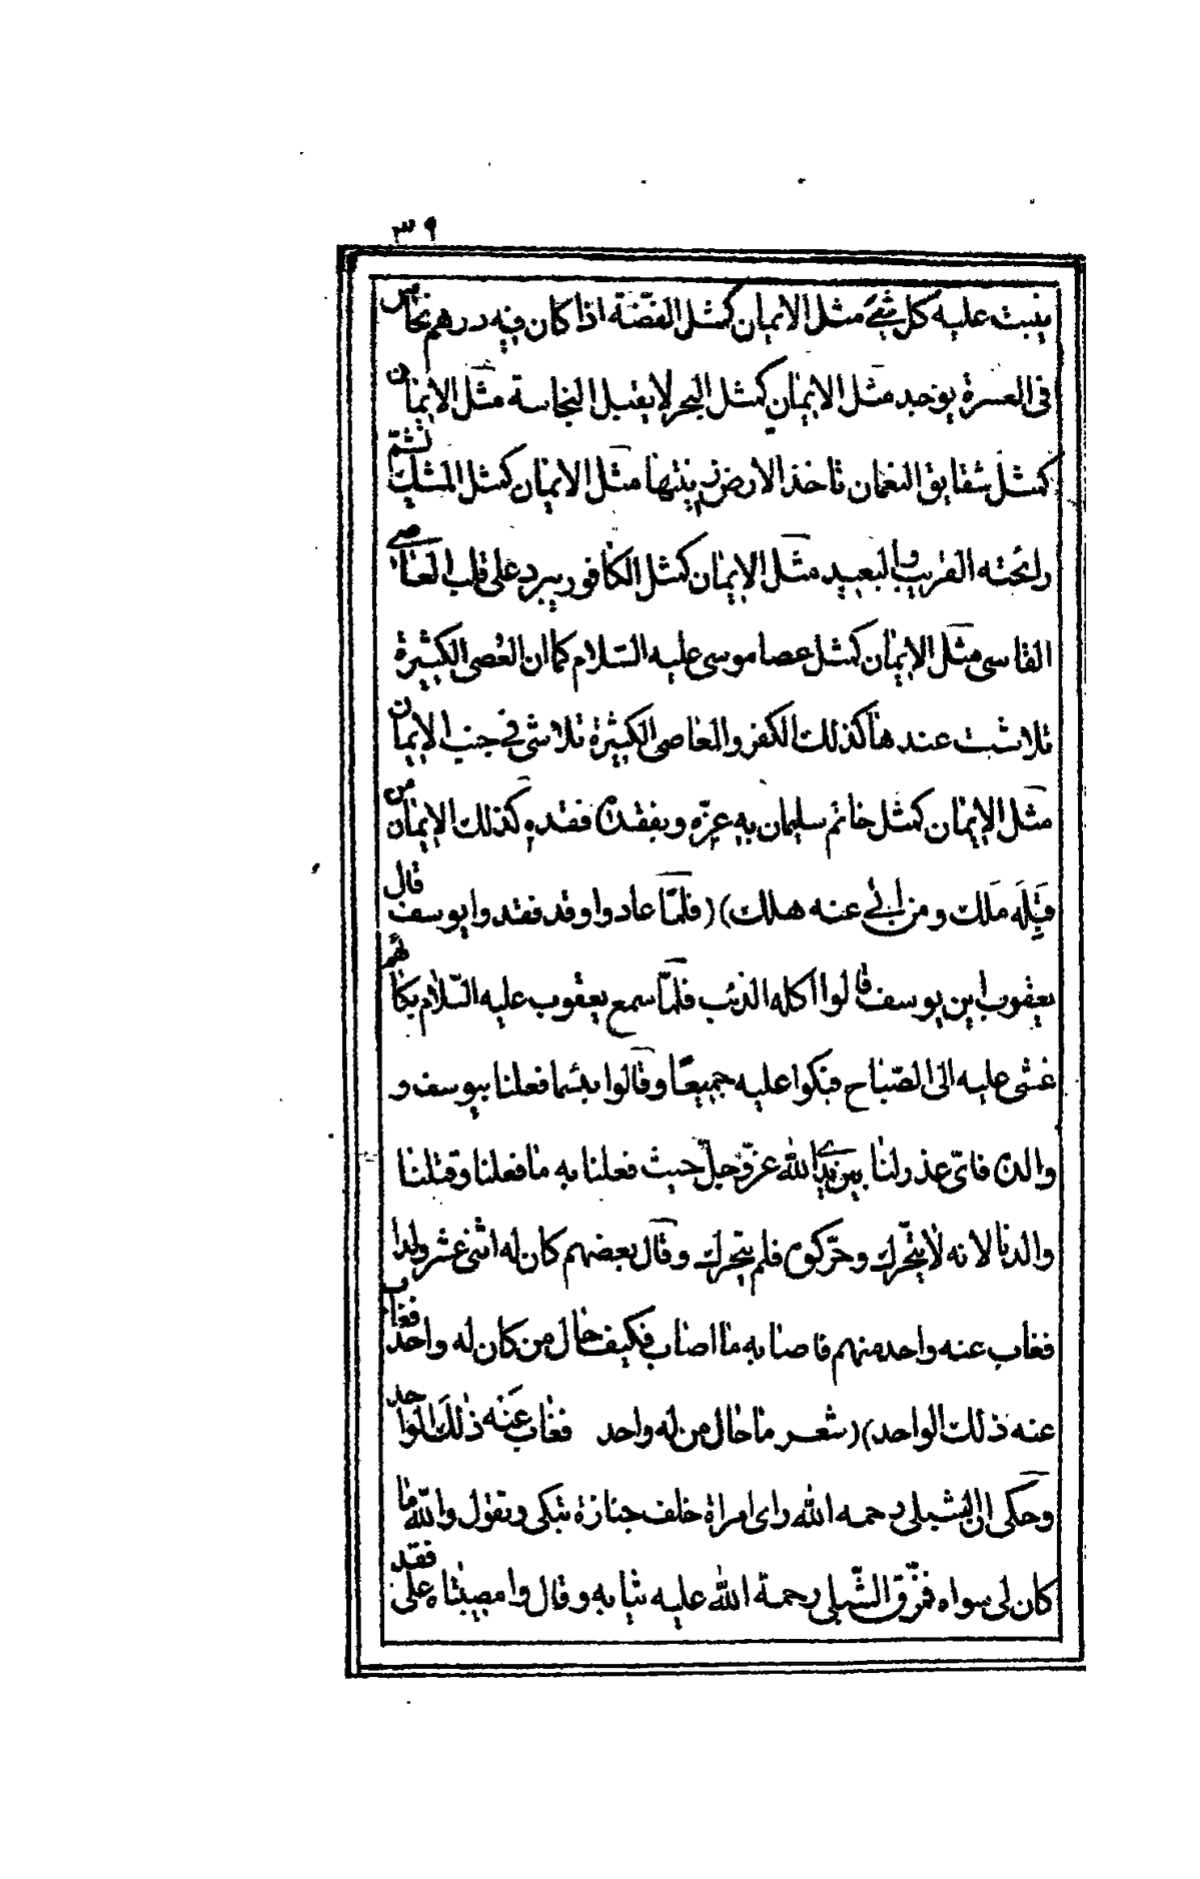 ٣٩
ينبت عليه كل شئ مثل الايمان كمثل الفضّة اذا كان فيه درهم نحاس
فى العسرة يوخد مثل الايمان كمثل البحر لا يقبل النجاسة مثل الايمان
كمثل شقايق النعمان تاخذ الارض زينتها مثل الايمان كمثل المسك تشمّ
رائحته القريب والبعيد مثل الايمان كمثل الكافور يبرد على قلب العاصى
القاسى مثل الايمان كمثل عصا موسى عليه السّلام كما ان العُصى الكثيرة
تلاشت عندها كذلك الكفر والمعاصى الكثيرة تلاشى فى جنب الايمان
مثل الايمان كمثل خاتم سليمان به عزّه وبفقده فقده كذلك الايمان من
قَبِلَه مَلَك ومن ابى عنه هلك) (فلمّا عادوا وقد فقدوا يوسف قال
يعقوب اين يوسف قالوا اكله الذئب فلمّا سمع يعقوب عليه السّلام بكاهم
غشى عليه الى الصّباح فبكوا عليه جميعًا وقالوا بئسما فعلنا بيوسف و
والده فاىّ عذر لنا بين يدى الله عزّ وجلّ حيث فعلنا به ما فعلنا وقتلنا
والدنا لانه لا يتحّرك وحرّكوه فلم يتحّرك وقال بعضهم كان له اثنى عشر ولدا
فغاب عنه واحد منهم فاصابه ما اصاب فكيف حال من كان له واحد فغاب
عنه ذلك الواحد) (شعر ما حال من له واحد فغاب عَنْه ذٰلك الواحد
وحكى ان الشبلى رحمه الله راى امراة خلف جنازة تبكى وتقول والله ما
كان لى سواه فمزّق الشّبلى رحمة الله عليه ثيابه وقال وامصيبتاه على فقد